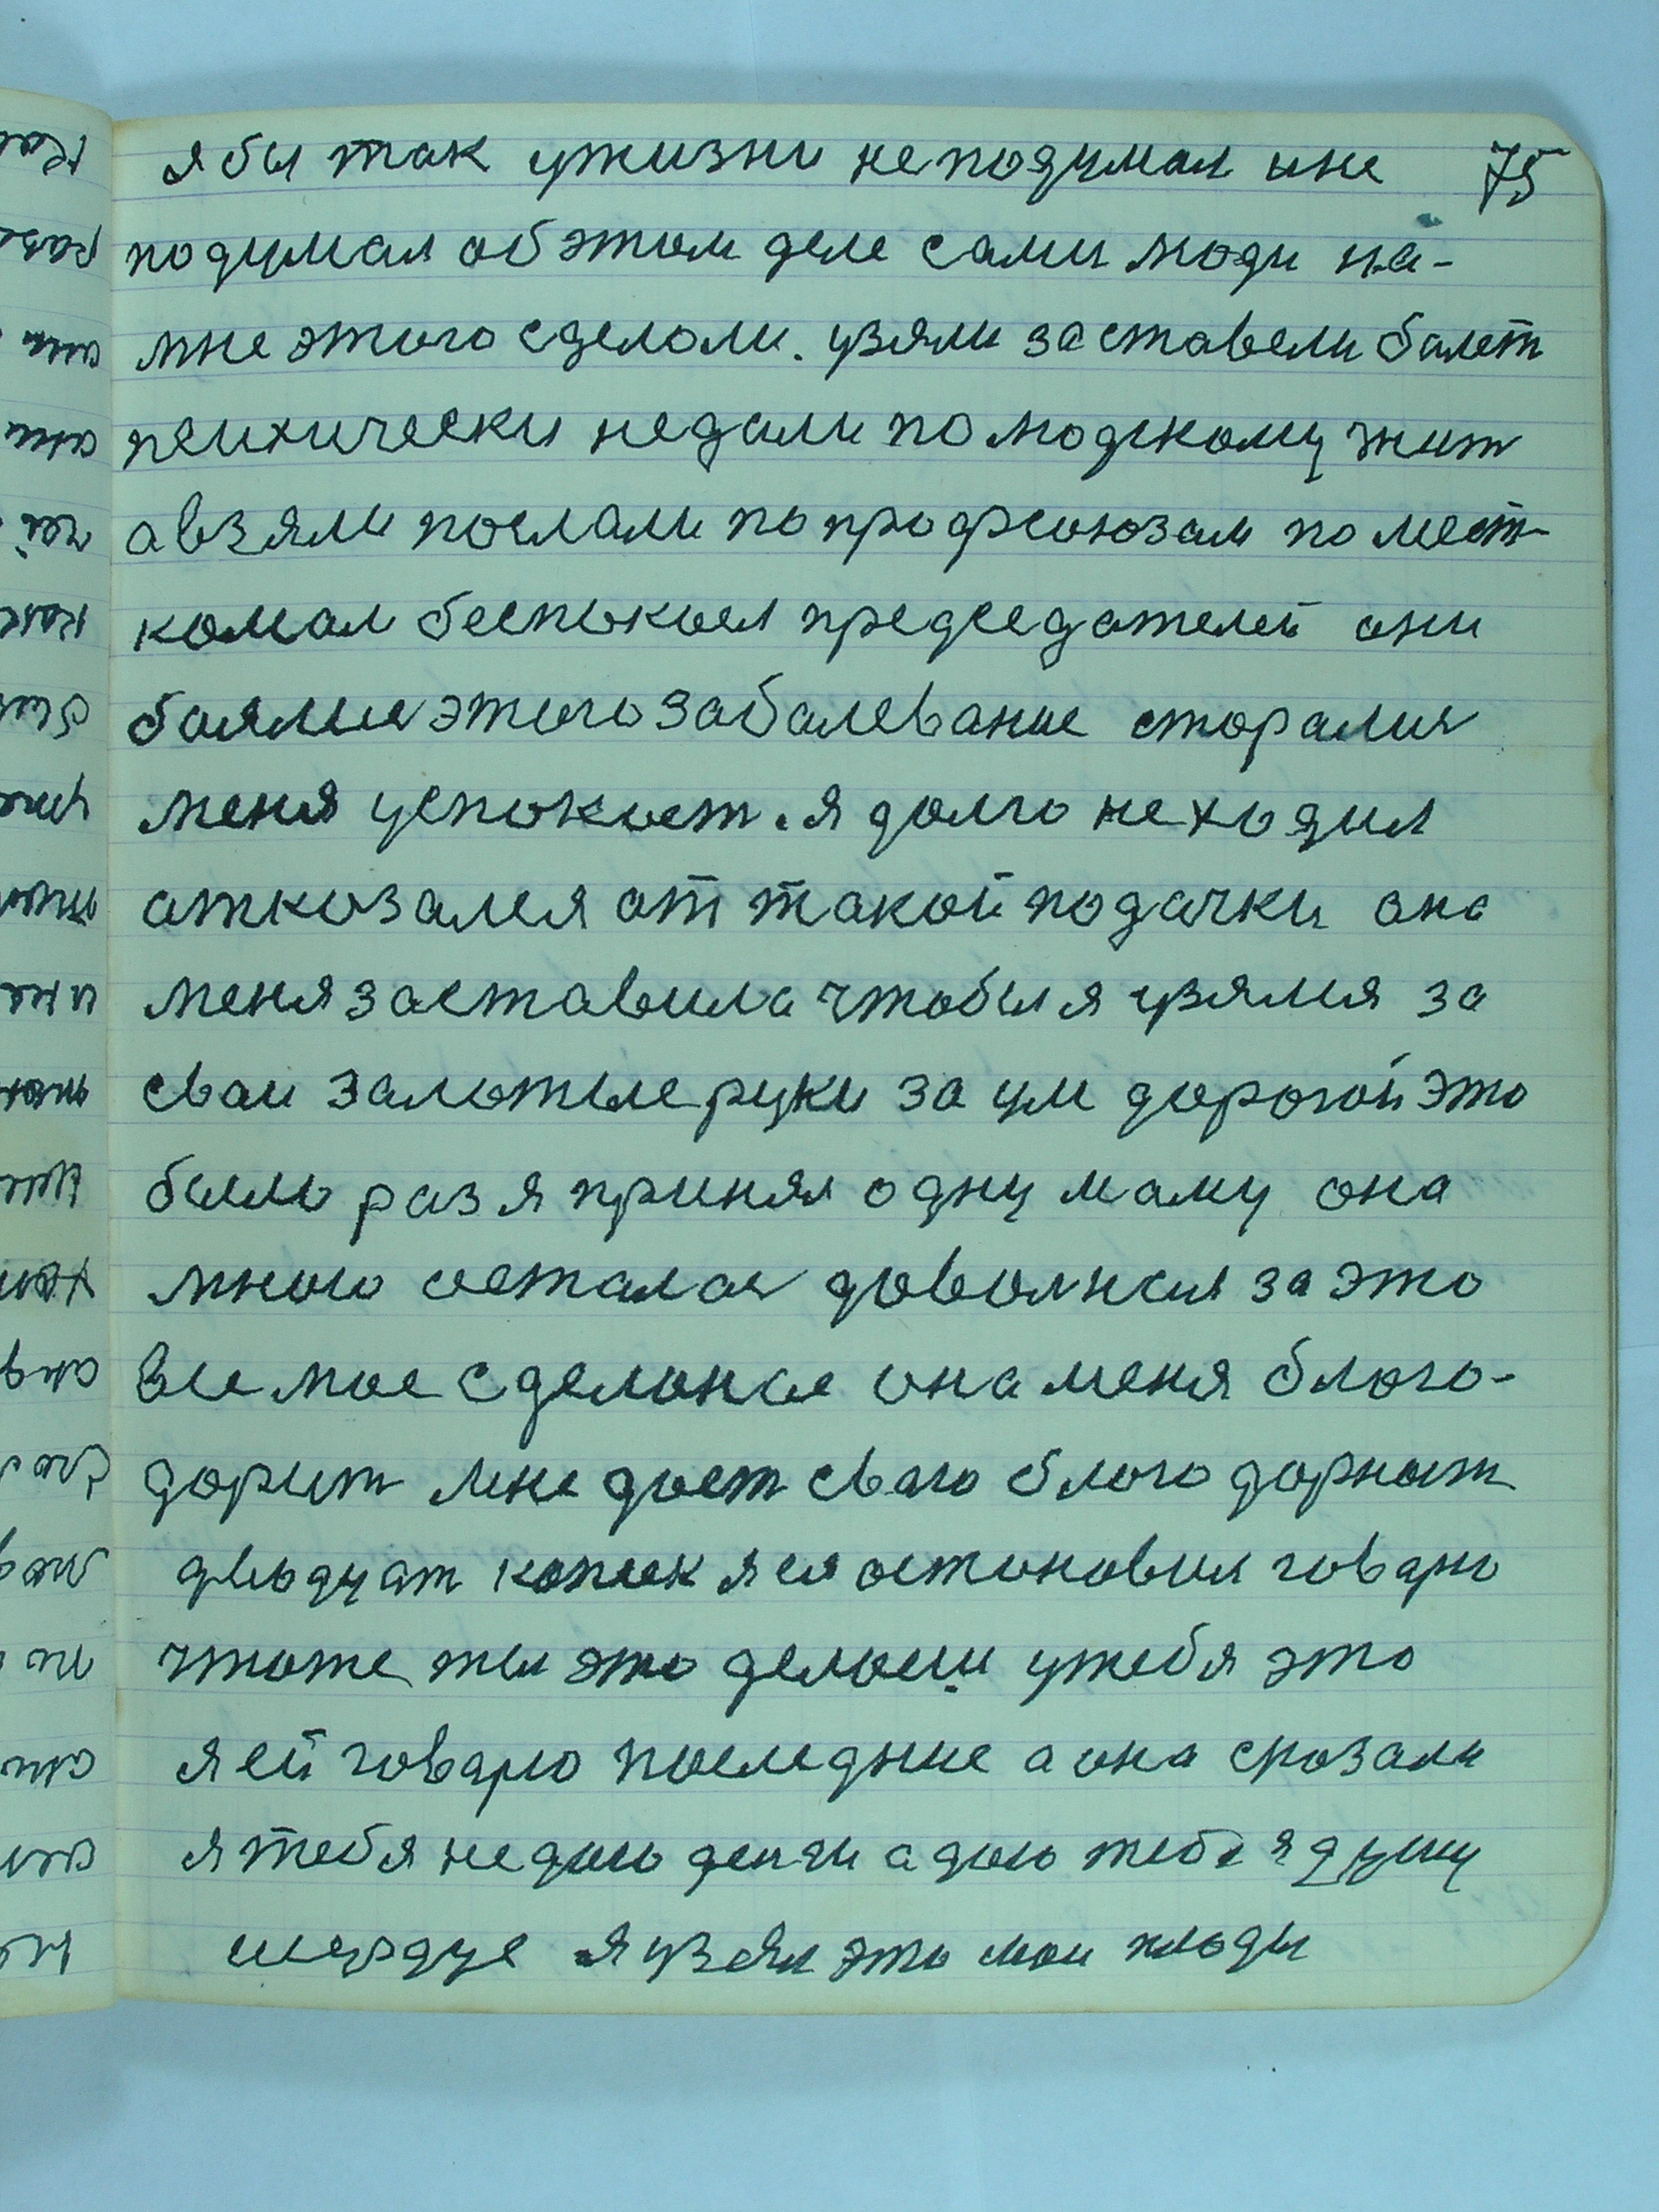 я бы так ужизни не подумал ине 75
подумал об этом деле сами люди на-
мне этого сделоли. узяли заставели балет
психически недали по людскому жит
авзяли послали по профсоюзам по мест-
комам беспокоел председателей они
баялися этого забалевание сторалися
меня успокоет. я долго не ходил
аткозался от такой подачки она
меня заставила чтобы я узялся за
сваи залотые руки за ум дорогой это
было раз я принял одну маму она
мною осталася довольная за это
все мое сделоное она меня блого-
дорит мне дает сваю блогодорност
двадцат копеек я ея остоновил говарю
чтоже ты это делоеш утебя это
я ей говарю последние а она срозали
я тебя не даю денги а даю тебе я душу
исердце я узял это мои плоды